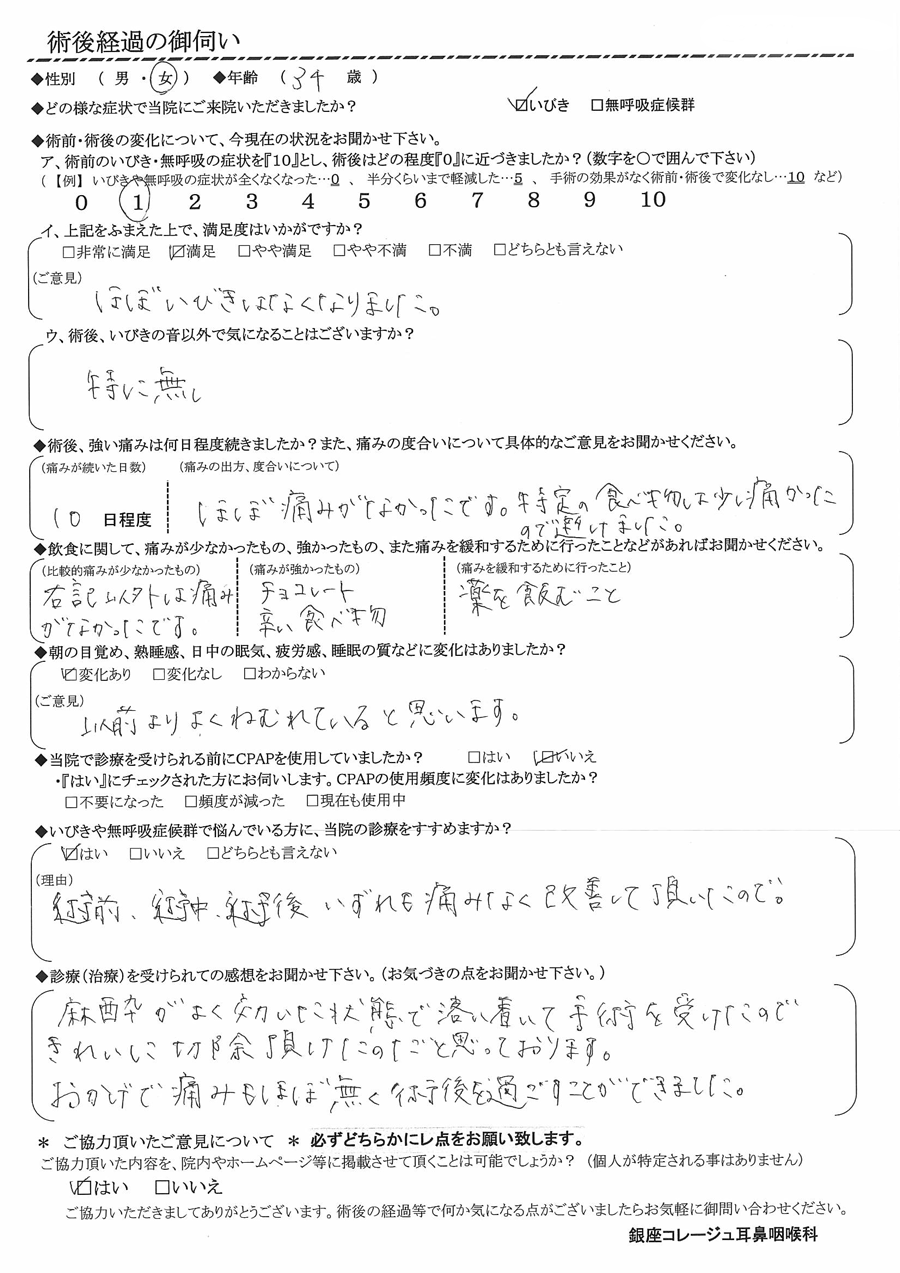 術後経過の御伺い
◆性別 ( 男 ・ 女 ) ◆年齢 ( 34 歳 )
◆どの様な症状で当院にご来院いただきましたか? ☑いびき □無呼吸症候群
◆術前・術後の変化について、今現在の状況をお聞かせ下さい。
ア、術前のいびき・無呼吸の症状を『10』とし、術後はどの程度『0』に近づきましたか?(数字を〇で囲んで下さい)
(【例】いびきや無呼吸の症状が全くなくなった…0 、 半分くらいまで軽減した…5 、 手術の効果がなく術前・術後で変化なし…10 など)
0 1 2 3 4 5 6 7 8 9 10
イ、上記をふまえた上で、満足度はいかがですか?
□非常に満足 ☑満足 □やや満足 □やや不満 □不満 □どちらとも言えない
(ご意見)
ほぼいびきはなくなりました。
ウ、術後、いびきの音以外で気になることはございますか?
特に無し
◆術後、強い痛みは何日程度続きましたか?また、痛みの度合いについて具体的なご意見をお聞かせください。
(痛みが続いた日数) (痛みの出方、度合いについて)
10 日程度 ほぼ痛みがなかったです。特定の食べ物は少し痛かった
ので避けました。
◆飲食に関して、痛みが少なかったもの、強かったもの、また痛みを緩和するために行ったことなどがあればお聞かせください。
(比較的痛みが少なかったもの) (痛みが強かったもの) (痛みを緩和するために行ったこと)
右記以外は痛み チョコレート 薬を飲むこと
がなかったです。 辛い食べ物
◆朝の目覚め、熟睡感、日中の眠気、疲労感、睡眠の質などに変化はありましたか?
☑変化あり □変化なし □わからない
(ご意見)
以前よりよくねむれていると思います。
◆当院で診療を受けられる前にCPAPを使用していましたか? □はい ☑いいえ
・『はい』にチェックされた方にお伺いします。CPAPの使用頻度に変化はありましたか?
□不要になった □頻度が減った □現在も使用中
◆いびきや無呼吸症候群で悩んでいる方に、当院の診療をすすめますか?
☑はい □いいえ □どちらとも言えない
(理由)
術前、術中、術後いずれも痛みなく改善して頂いたので。
◆診療(治療)を受けられての感想をお聞かせ下さい。(お気づきの点をお聞かせ下さい。)
麻酔がよく効いた状態で落い着いて手術を受けたので
きれいに切除頂けたのだと思っております。
おかげで痛みもほぼ無く術後を過ごすことができました。
＊ ご協力頂いたご意見について ＊ 必ずどちらかにレ点をお願い致します。
ご協力頂いた内容を、院内やホームページ等に掲載させて頂くことは可能でしょうか? (個人が特定される事はありません)
☑はい □いいえ
ご協力いただきましてありがとうございます。術後の経過等で何か気になる点がございましたらお気軽に御問い合わせください。
銀座コレージュ耳鼻咽喉科